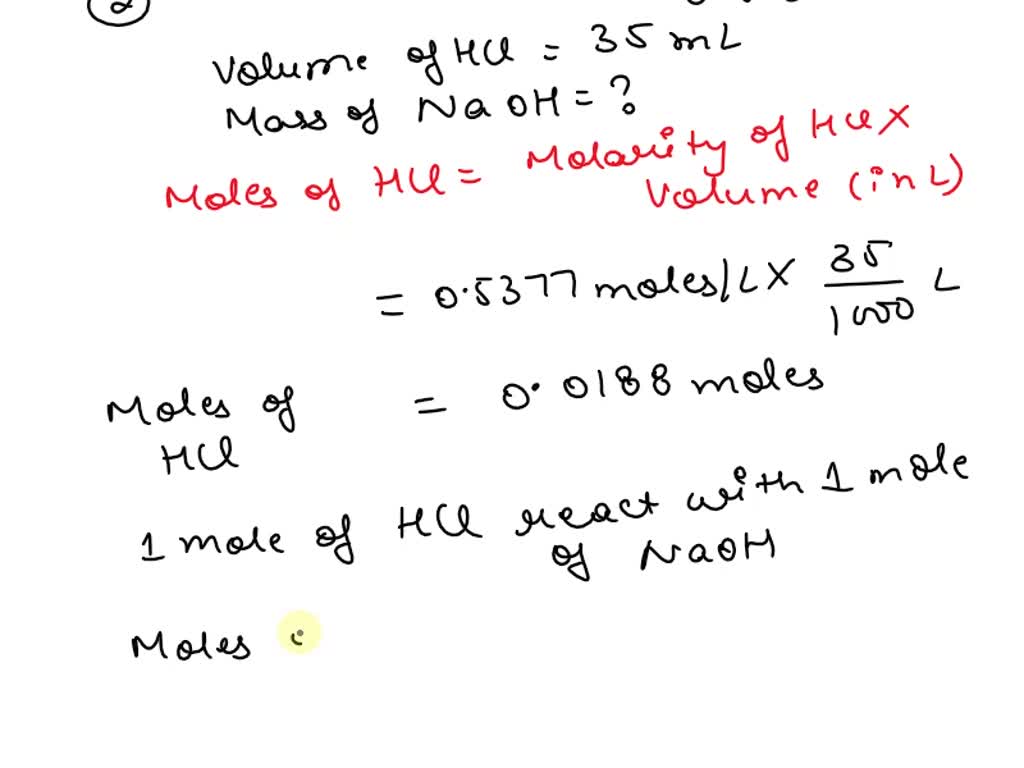 2
Volume of HCl = 35 mL
Mass of NaOH = ?
Moles of HCl = Molarity of HCl X
Volume (in L)
= 0.5377 moles/L X 35/1000 L
Moles of = 0.0188 moles
HCl
1 mole of HCl react with 1 mole
of NaOH
Moles